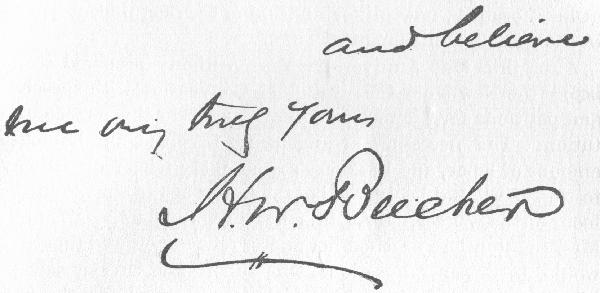 and believe
me very truly yours
H. W. Beecher